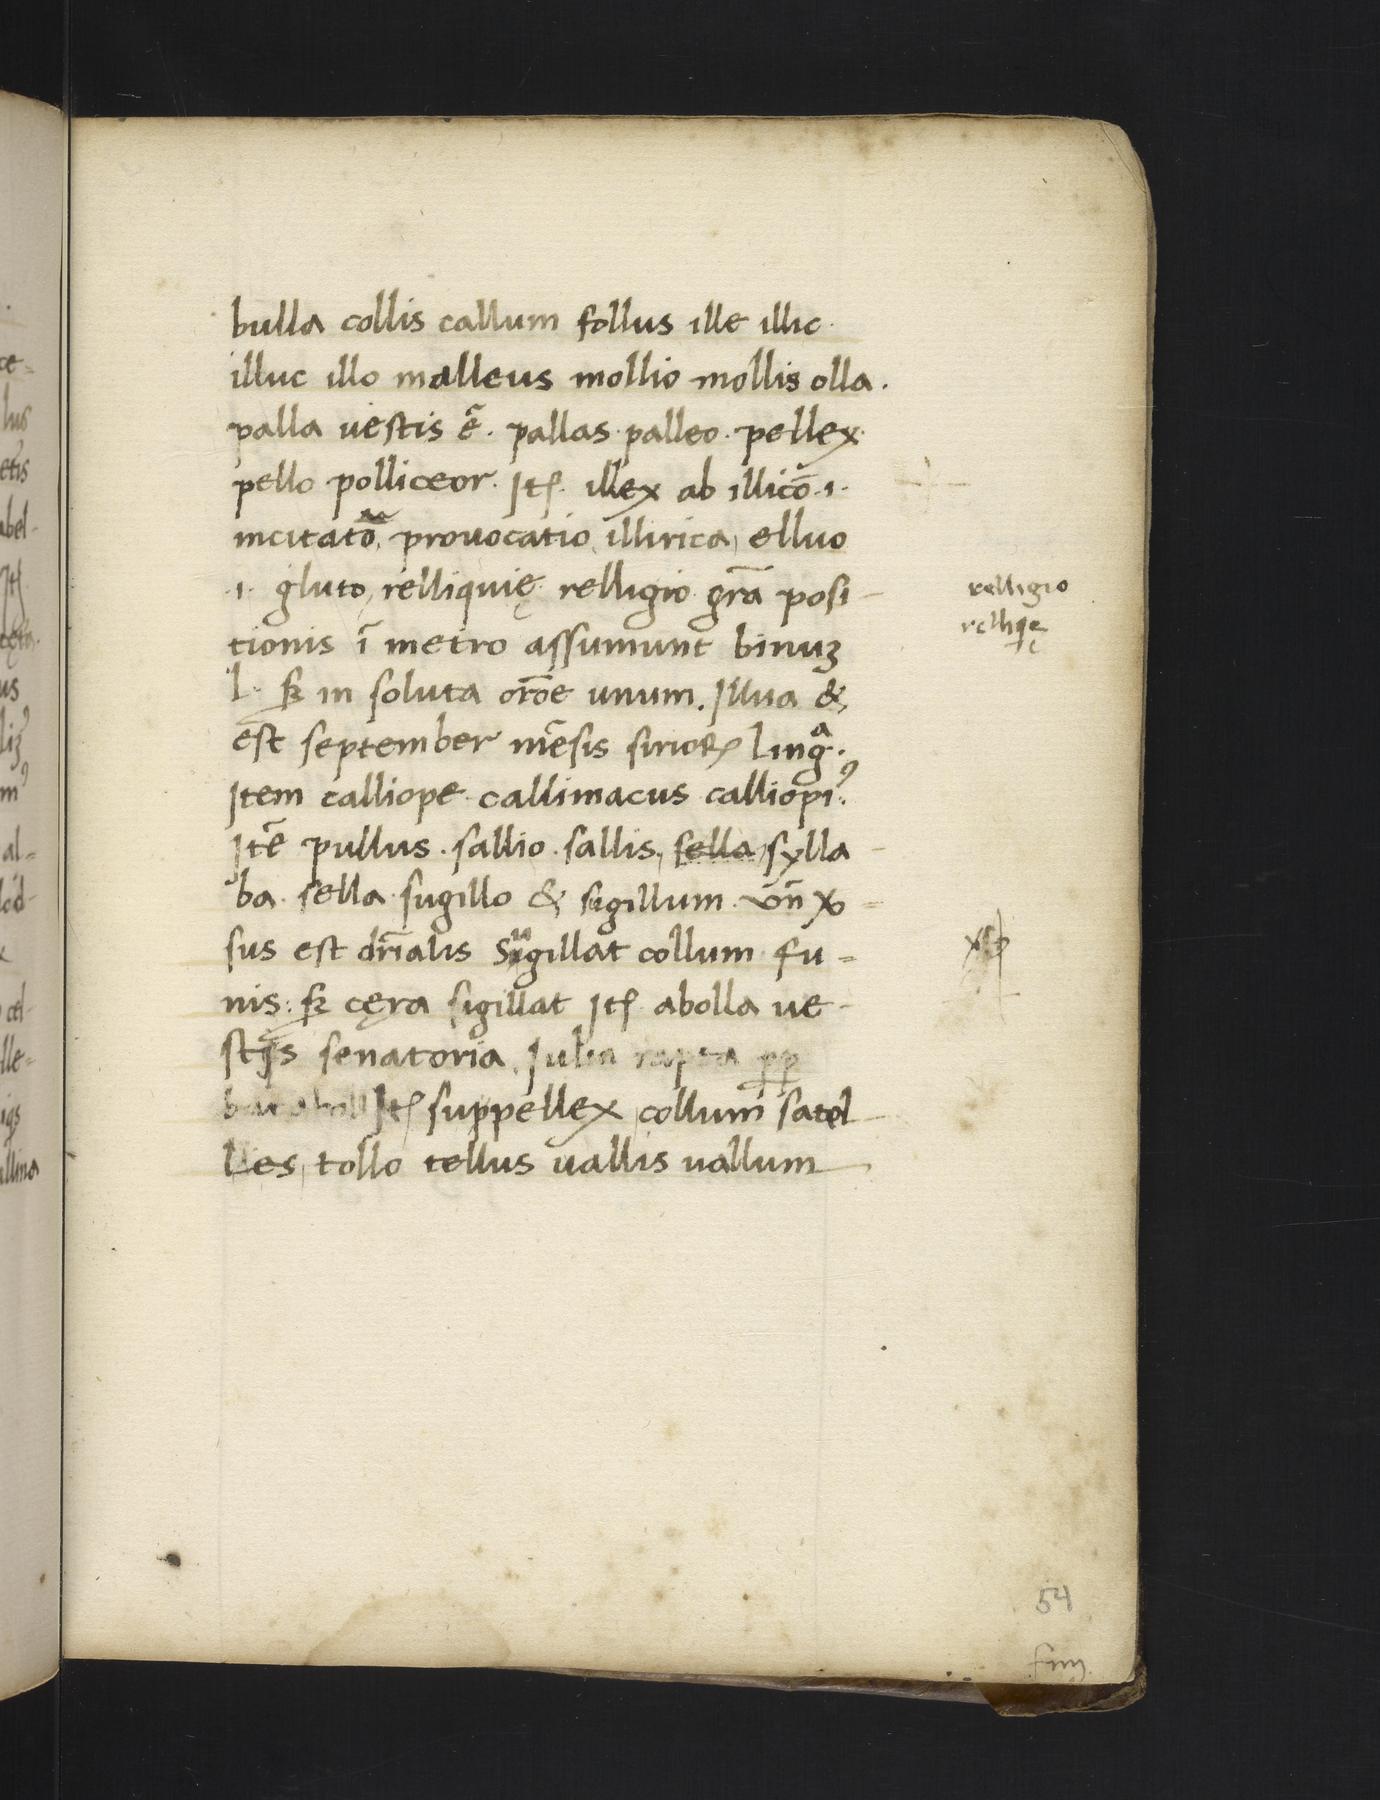 bulla collis callum follus ille illic.
illuc illo malleus mollio mollis olla.
palla vestis ē. pallas palleo. pellex.
pello polliceor. Itꝭ. illex ab illicō .i.
incitatō, provocatio, illirica, elluo
.i. gluto, relliquię relligio grā posi-
tionis ī metro assumunt binuꝫ
l. sꝫ in soluta orōe unum. Illua &
est september mēsis sirioꝝ lingᵃ.
Item calliope callimacus calliopiꝰ.
Itē pullus. sallio. sallis, sella, sylla-
ba. sella. sugillo & sigillum. vn̄ v̉-
sus est dr̄ialis Sugillat collum fu=
nis: sꝫ cęra sigillat Itꝭ abolla ve-
stis senatoria. Iulia rapta
Itꝭ suppellex collum satel-
les, tollo tellus vallis vallum
relligio
relliq̄ę
54